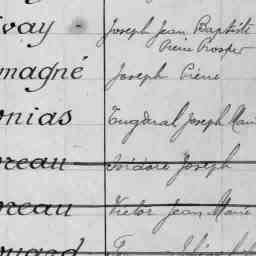 ivay Joseph Jean Baptiste
Pierre Prosper
magné Joseph Pierre
onias Tugdual Joseph Marie
reau Isidore Joseph
neau Victor Jean Marie